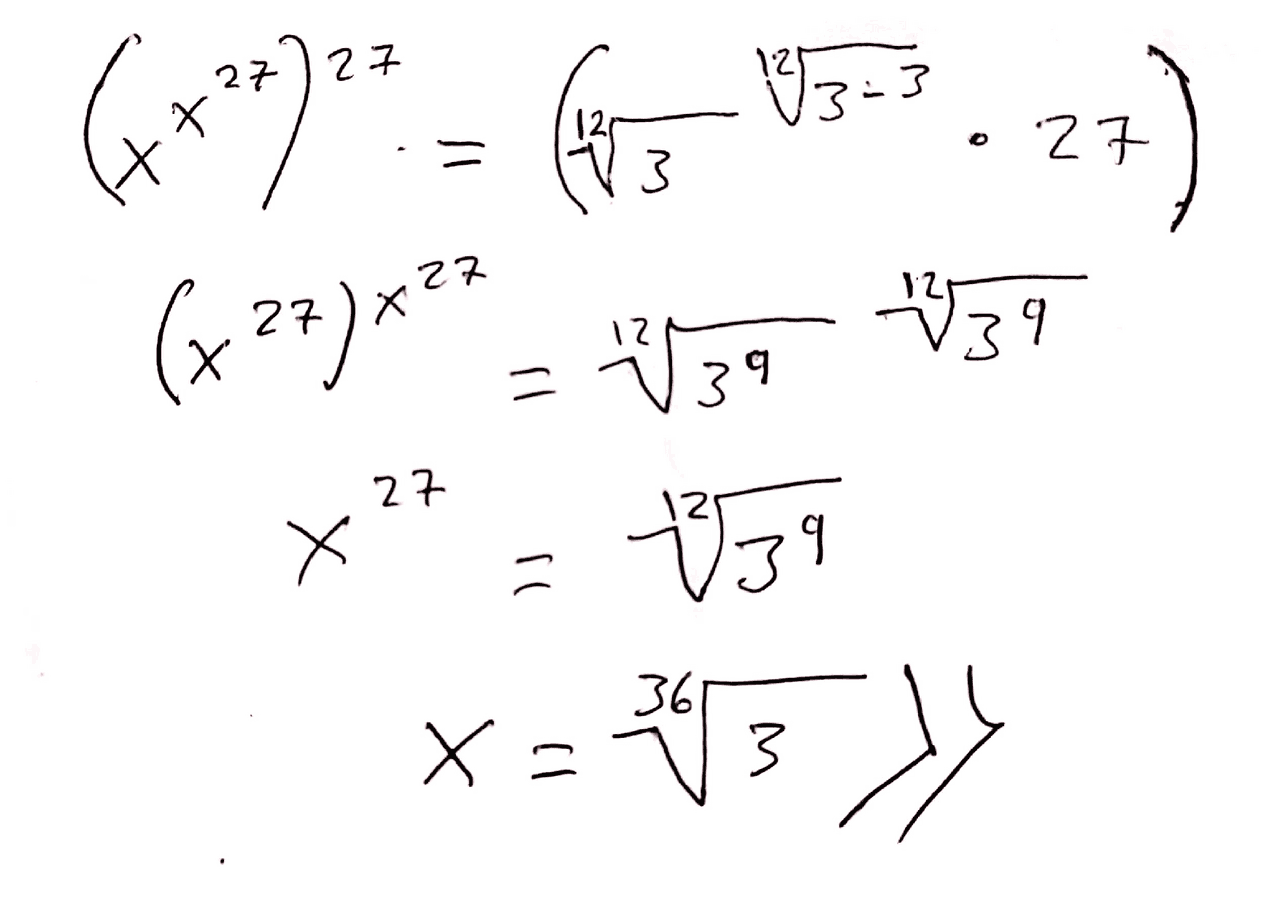 (x^{x^{27}})^{27} = (\sqrt[12]{3}^{\sqrt[12]{3-3}} · 27)
(x^{27})^{x^{27}} = \sqrt[12]{3^9}^{\sqrt[12]{3^9}}
x^{27} = \sqrt[12]{3^9}
x = \sqrt[36]{3}